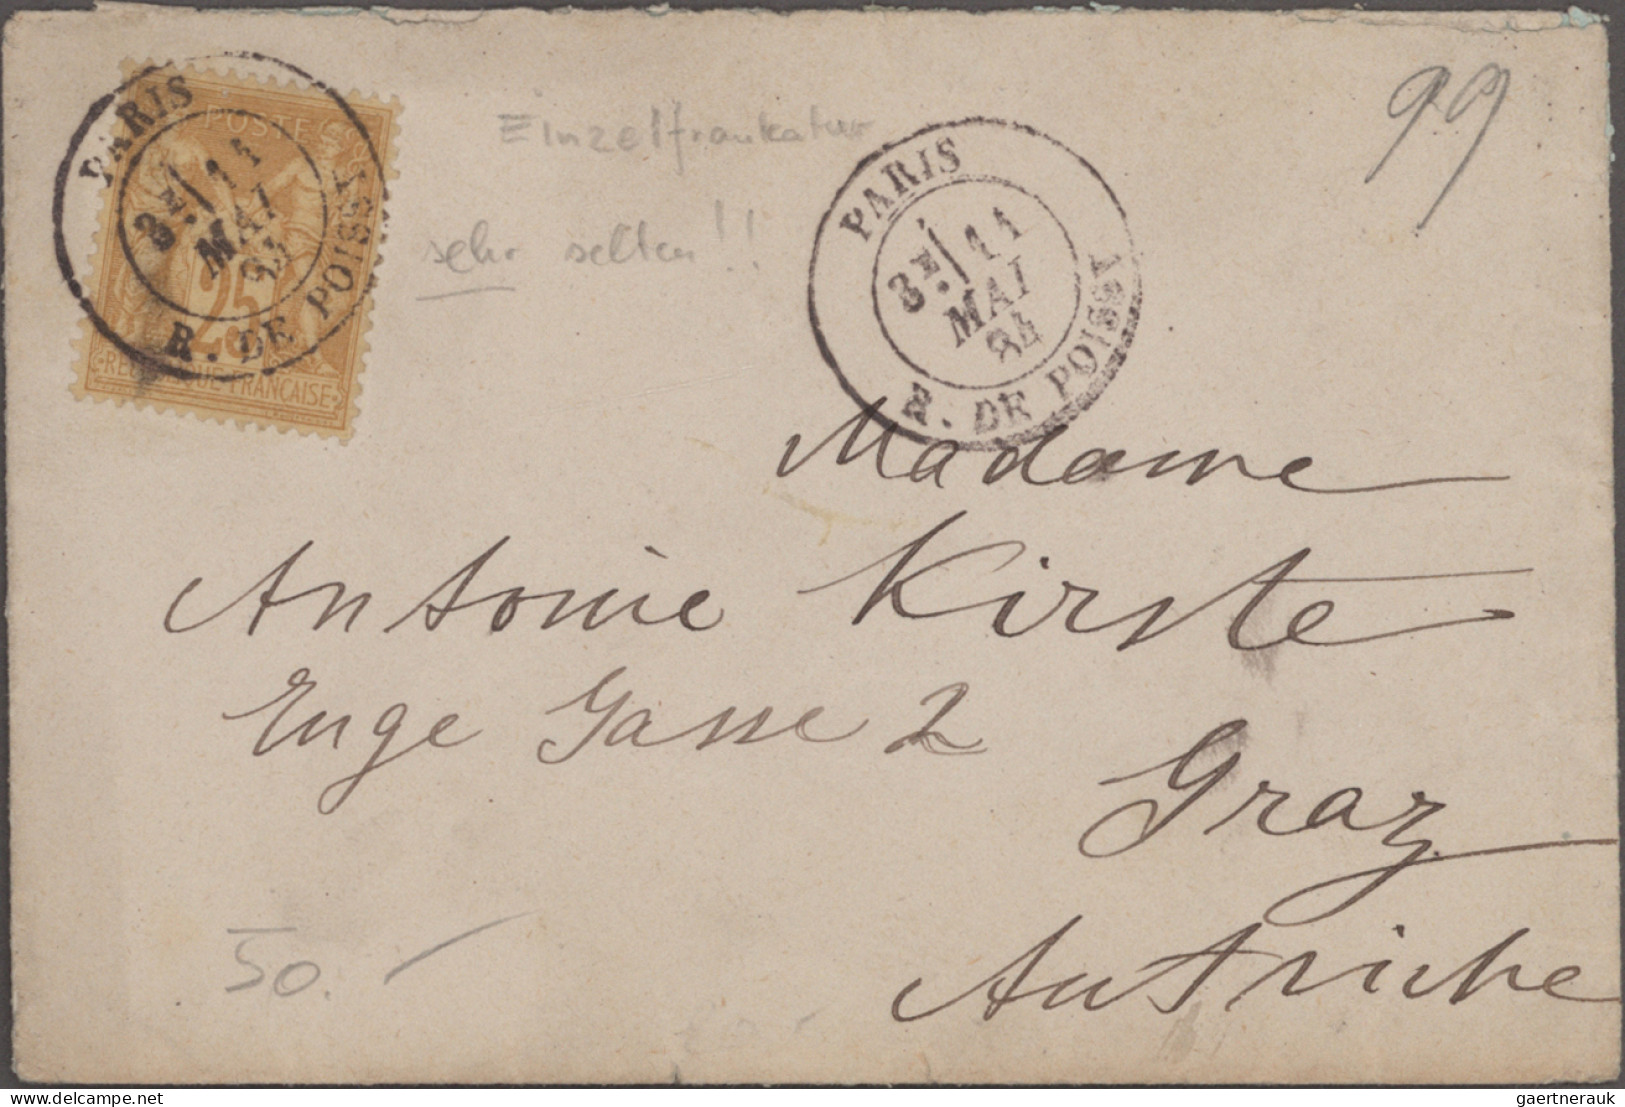 POSTE
25
REPUBLIQUE FRANÇAISE
PARIS
3E / 11
MAI
84
R. DE POISSY
Einzelfrankatur
sehr selten!!
PARIS
3E / 11
MAI
84
R. DE POISSY
99
Madame
Antonie Kirste
Enge Gasse 2
Graz
Autriche
50.-
gaertnerauk